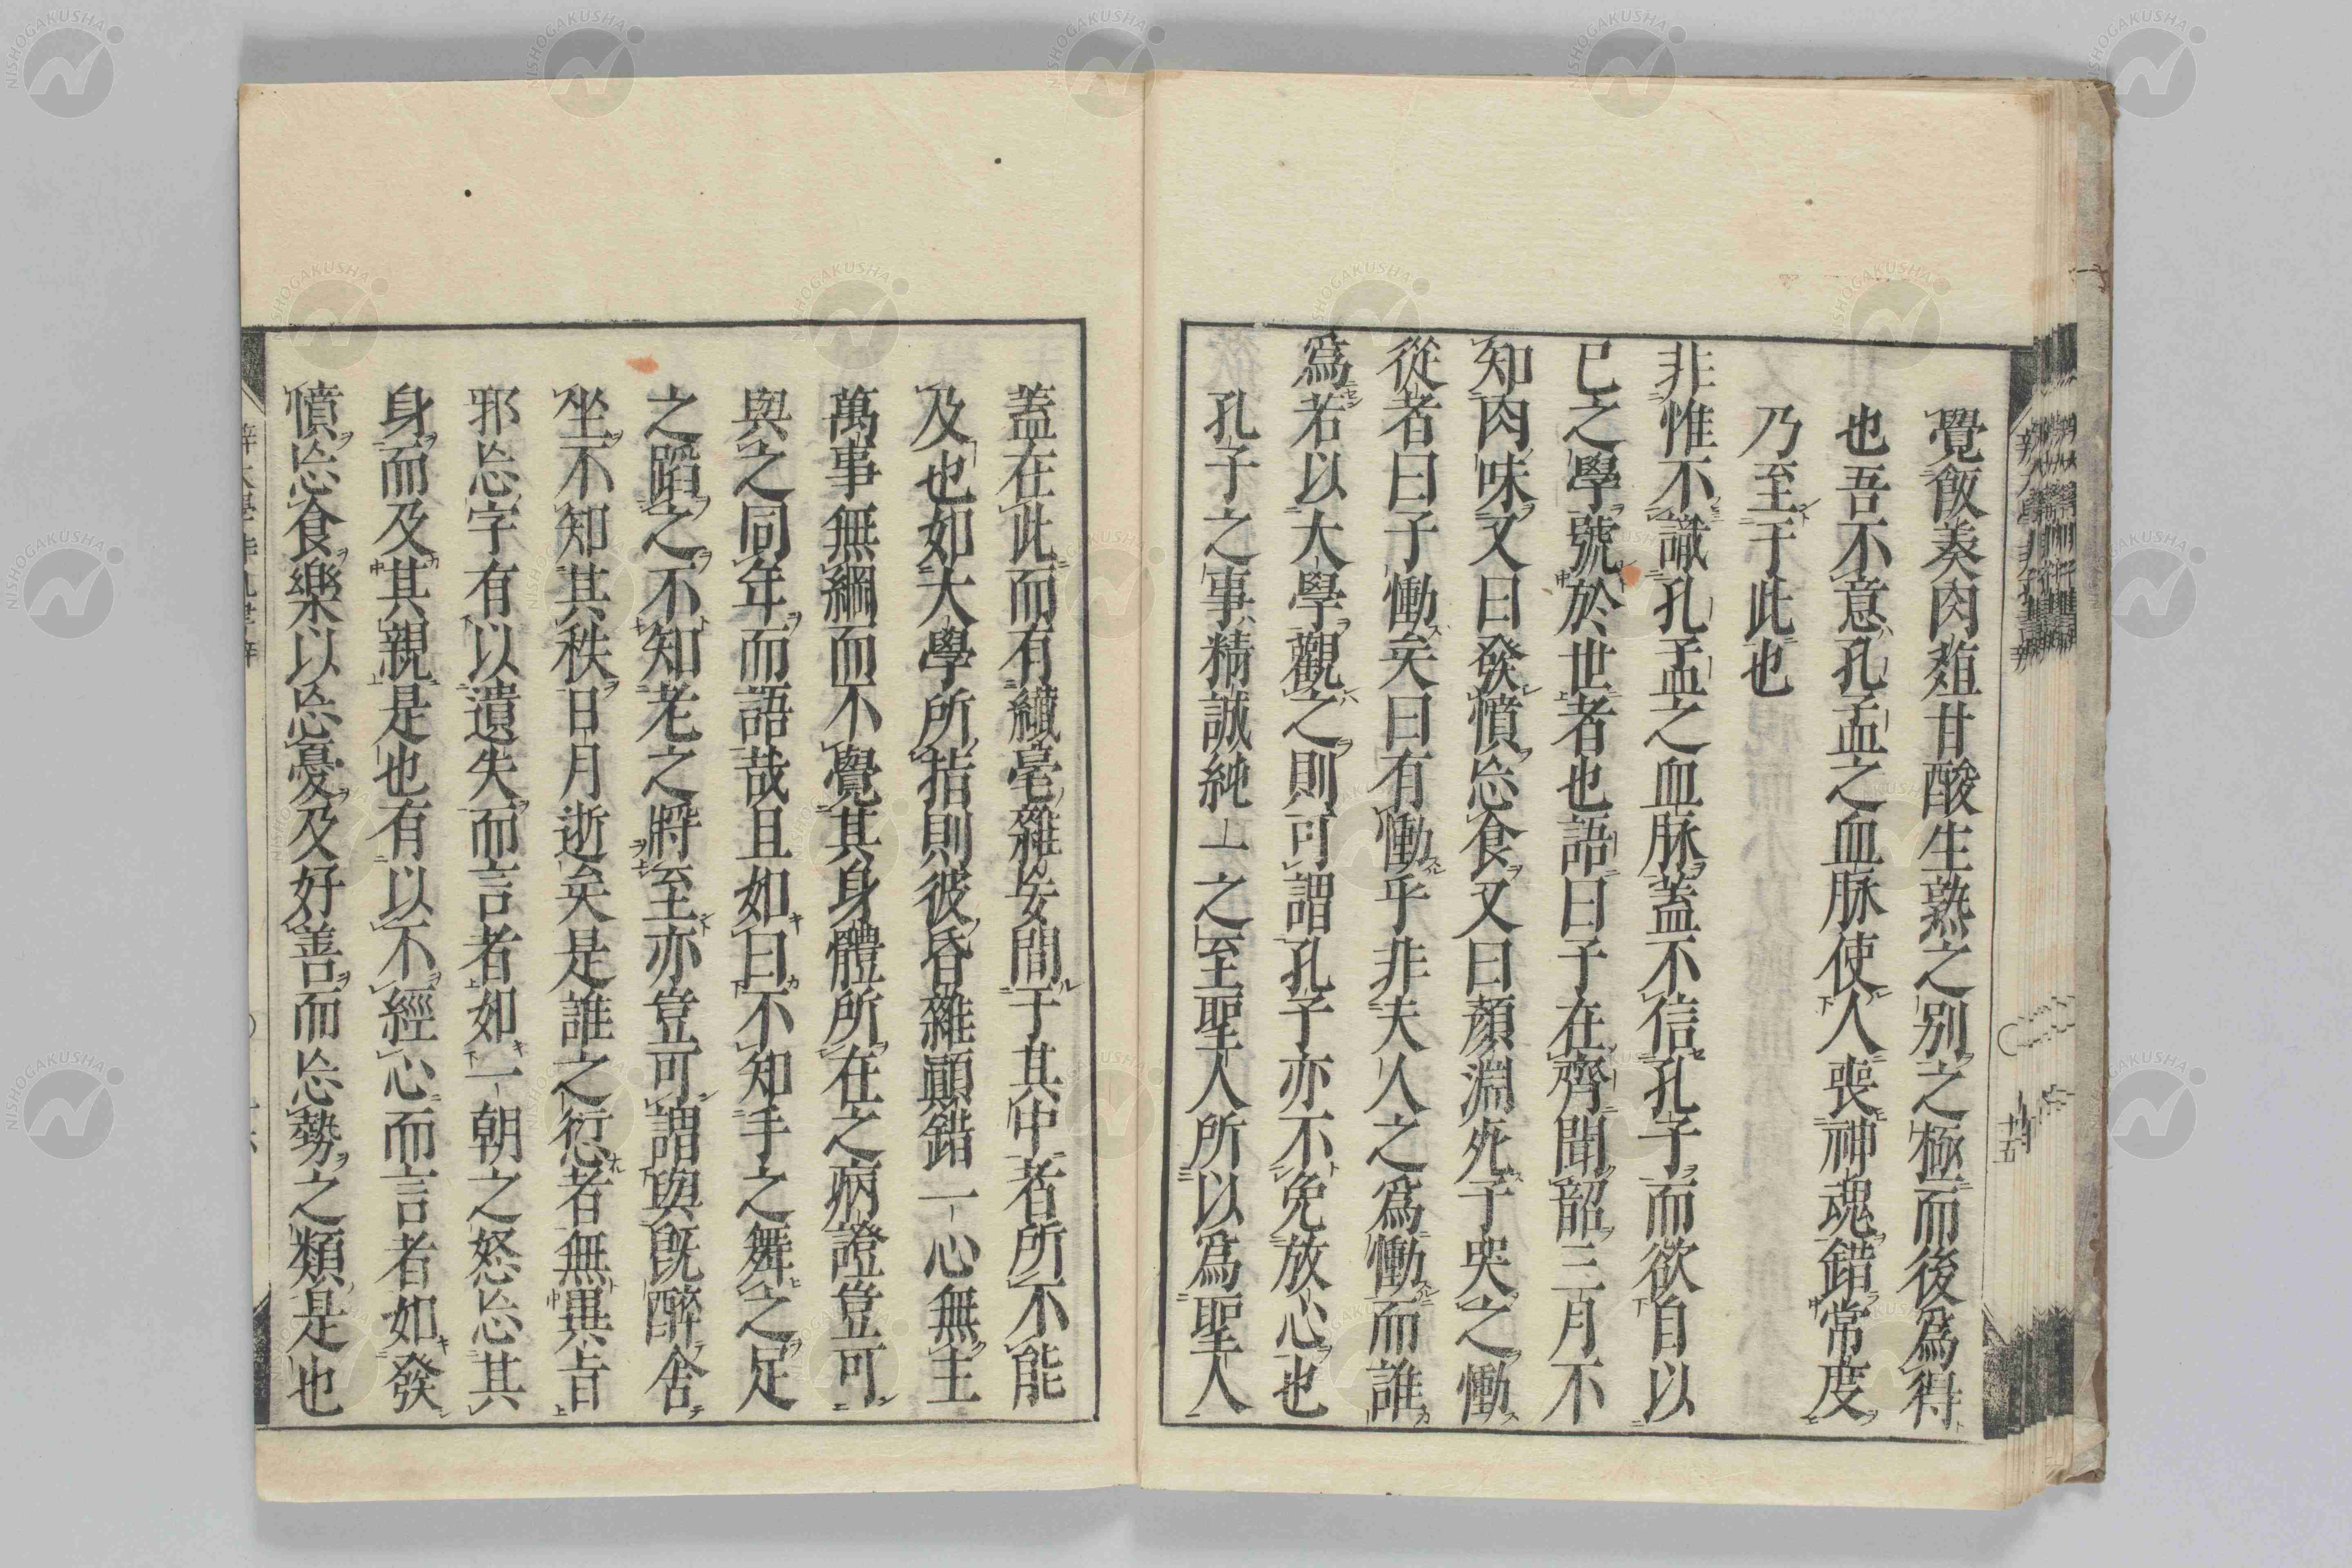 覺飯羮肉葅甘酸生熟之別之極而後爲得
也吾不意孔孟之血脉使人喪神魂錯常度
乃至于此也
非惟不識孔孟之血脉蓋不信孔子而欲自以
已之學號於世者也語曰子在齊聞韶三月不
知肉味又曰發憤忘食又曰顏淵死子哭之慟
從者曰子慟矣曰有慟乎非夫人之爲慟而誰
爲若以大學觀之則可謂孔子亦不免放心也
孔子之事精誠純一之至聖人所以爲聖人
蓋在此而有纎毫雜妄間于其中者所不能
及也如大學所指則彼昏雜顚錯一心無主
萬事無綱而不覺其身體所在之病證豈可
與之同年而語哉且如曰不知手之舞之足
之蹈之不知老之將至亦豈可謂與旣醉舍
坐不知其秩日月逝矣是誰之愆者無異旨
邪忘字有以遺失而言者如一朝之怒忘其
身而及其親是也有以不經心而言者如發
憤忘食樂以忘憂及好善而忘勢之類是也
十五